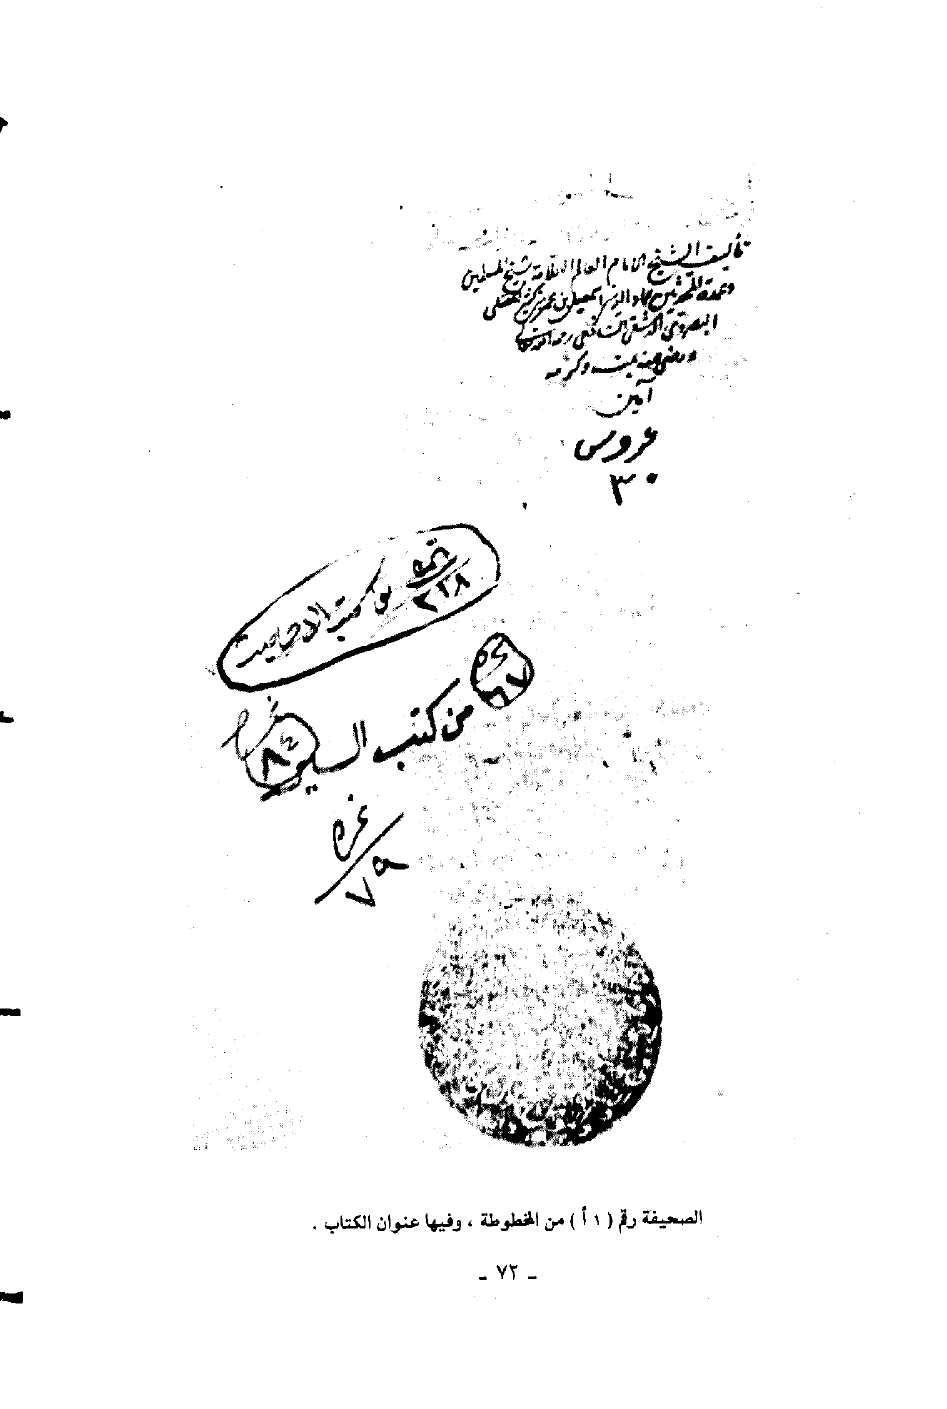 تأليف الشيخ الامام العالم العلامة شيخ المسلمين
وعمدة المحدثين عماد الدين اسمعيل بن عمر بن كثير
البصروي الدمشقي الشافعي رحمه الله
ورضي عنه بمنه وكرمه
آمين
عروس
٣٠
نمرة
٢١٨
من كتب الاحاديث
نمره
٦٧
من كتب السير
نمره
٨٤
نمره
٧٩
الصحيفة رقم ( ١ أ ) من المخطوطة ، وفيها عنوان الكتاب .
ـ ٧٢ ـ